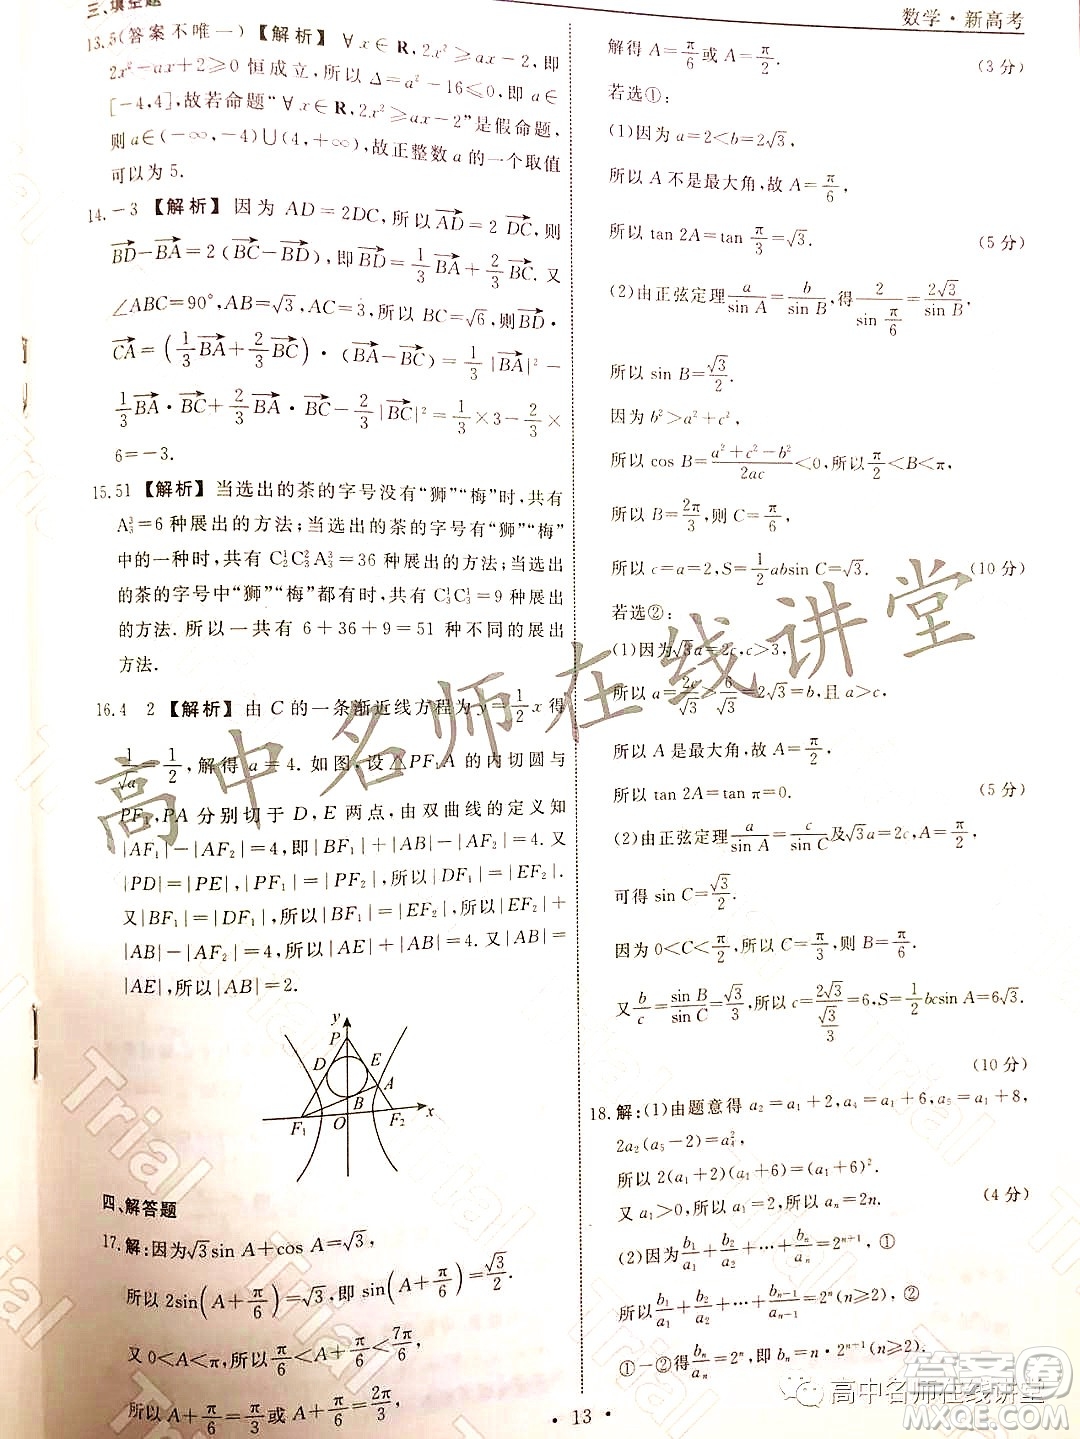 数学·新高考
三、填空题
13.5(答案不唯一)【解析】∀x∈R,2x²≥ax-2,即
2x²-ax+2≥0 恒成立,所以 Δ=a²-16≤0,即 a∈
[-4,4],故若命题“∀x∈R,2x²≥ax-2”是假命题,
则 a∈(-∞,-4)∪(4,+∞),故正整数 a 的一个取值
可以为 5.
14.-3 【解析】因为 AD=2DC,所以 \overrightarrow{AD}=2\overrightarrow{DC},则
\overrightarrow{BD}-\overrightarrow{BA}=2(\overrightarrow{BC}-\overrightarrow{BD}),即\overrightarrow{BD}=\frac{1}{3}\overrightarrow{BA}+\frac{2}{3}\overrightarrow{BC}. 又
∠ABC=90°,AB=√3,AC=3,所以 BC=√6,则\overrightarrow{BD}·
\overrightarrow{CA}=(\frac{1}{3}\overrightarrow{BA}+\frac{2}{3}\overrightarrow{BC})·(\overrightarrow{BA}-\overrightarrow{BC})=\frac{1}{3}|\overrightarrow{BA}|²-
\frac{1}{3}\overrightarrow{BA}·\overrightarrow{BC}+\frac{2}{3}\overrightarrow{BA}·\overrightarrow{BC}-\frac{2}{3}|\overrightarrow{BC}|²=\frac{1}{3}×3-\frac{2}{3}×
6=-3.
15.51 【解析】当选出的茶的字号没有“狮”“梅”时,共有
A₃³=6 种展出的方法;当选出的茶的字号有“狮”“梅”
中的一种时,共有 C₂¹C₃²A₃³=36 种展出的方法;当选出
的茶的字号中“狮”“梅”都有时,共有 C₃¹C₃¹=9 种展出
的方法. 所以一共有 6+36+9=51 种不同的展出
方法.
16.4 2 【解析】由 C 的一条渐近线方程为 y=\frac{1}{2}x 得
\frac{1}{√a}=\frac{1}{2},解得 a=4. 如图,设△PF₁A 的内切圆与
PF₁,PA 分别切于 D,E 两点,由双曲线的定义知
|AF₁|-|AF₂|=4,即|BF₁|+|AB|-|AF₂|=4. 又
|PD|=|PE|,|PF₁|=|PF₂|,所以|DF₁|=|EF₂|.
又|BF₁|=|DF₁|,所以|BF₁|=|EF₂|,所以|EF₂|+
|AB|-|AF₂|=4,所以|AE|+|AB|=4. 又|AB|=
|AE|,所以|AB|=2.
y
P
D
E
A
B
F₁
O
F₂
x
四、解答题
17.解:因为√3sin A+cos A=√3,
所以 2sin(A+\frac{π}{6})=√3,即 sin(A+\frac{π}{6})=\frac{√3}{2}.
又 0<A<π,所以\frac{π}{6}<A+\frac{π}{6}<\frac{7π}{6},
所以 A+\frac{π}{6}=\frac{π}{3}或 A+\frac{π}{6}=\frac{2π}{3},
解得 A=\frac{π}{6}或 A=\frac{π}{2}. (3 分)
若选①:
(1)因为 a=2<b=2√3,
所以 A 不是最大角,故 A=\frac{π}{6},
所以 tan 2A=tan \frac{π}{3}=√3. (5 分)
(2)由正弦定理\frac{a}{sin A}=\frac{b}{sin B},得\frac{2}{sin \frac{π}{6}}=\frac{2√3}{sin B},
所以 sin B=\frac{√3}{2}.
因为 b²>a²+c²,
所以 cos B=\frac{a²+c²-b²}{2ac}<0,所以\frac{π}{2}<B<π,
所以 B=\frac{2π}{3},则 C=\frac{π}{6},
所以 c=a=2,S=\frac{1}{2}absin C=√3. (10 分)
若选②:
(1)因为√3a=2c,c>3,
所以 a=\frac{2c}{√3}>\frac{6}{√3}=2√3=b,且 a>c,
所以 A 是最大角,故 A=\frac{π}{2},
所以 tan 2A=tan π=0. (5 分)
(2)由正弦定理\frac{a}{sin A}=\frac{c}{sin C}及√3a=2c,A=\frac{π}{2},
可得 sin C=\frac{√3}{2}.
因为 0<C<\frac{π}{2},所以 C=\frac{π}{3},则 B=\frac{π}{6}.
又\frac{b}{c}=\frac{sin B}{sin C}=\frac{√3}{3},所以 c=\frac{2√3}{\frac{√3}{3}}=6,S=\frac{1}{2}bcsin A=6√3.
(10 分)
18.解:(1)由题意得 a₂=a₁+2,a₄=a₁+6,a₅=a₁+8,
2a₂(a₅-2)=a₄²,
所以 2(a₁+2)(a₁+6)=(a₁+6)².
又 a₁>0,所以 a₁=2,所以 aₙ=2n. (4 分)
(2)因为\frac{b₁}{a₁}+\frac{b₂}{a₂}+···+\frac{bₙ}{aₙ}=2ⁿ⁺¹, ①
所以\frac{b₁}{a₁}+\frac{b₂}{a₂}+···+\frac{bₙ₋₁}{aₙ₋₁}=2ⁿ(n≥2), ②
①-②得\frac{bₙ}{aₙ}=2ⁿ,即 bₙ=n·2ⁿ⁺¹(n≥2).
· 13 ·
高中名师在线讲堂
高中名师在线讲堂
答案圈
MXQE.COM
Trial
Trial
Trial
Trial
Trial